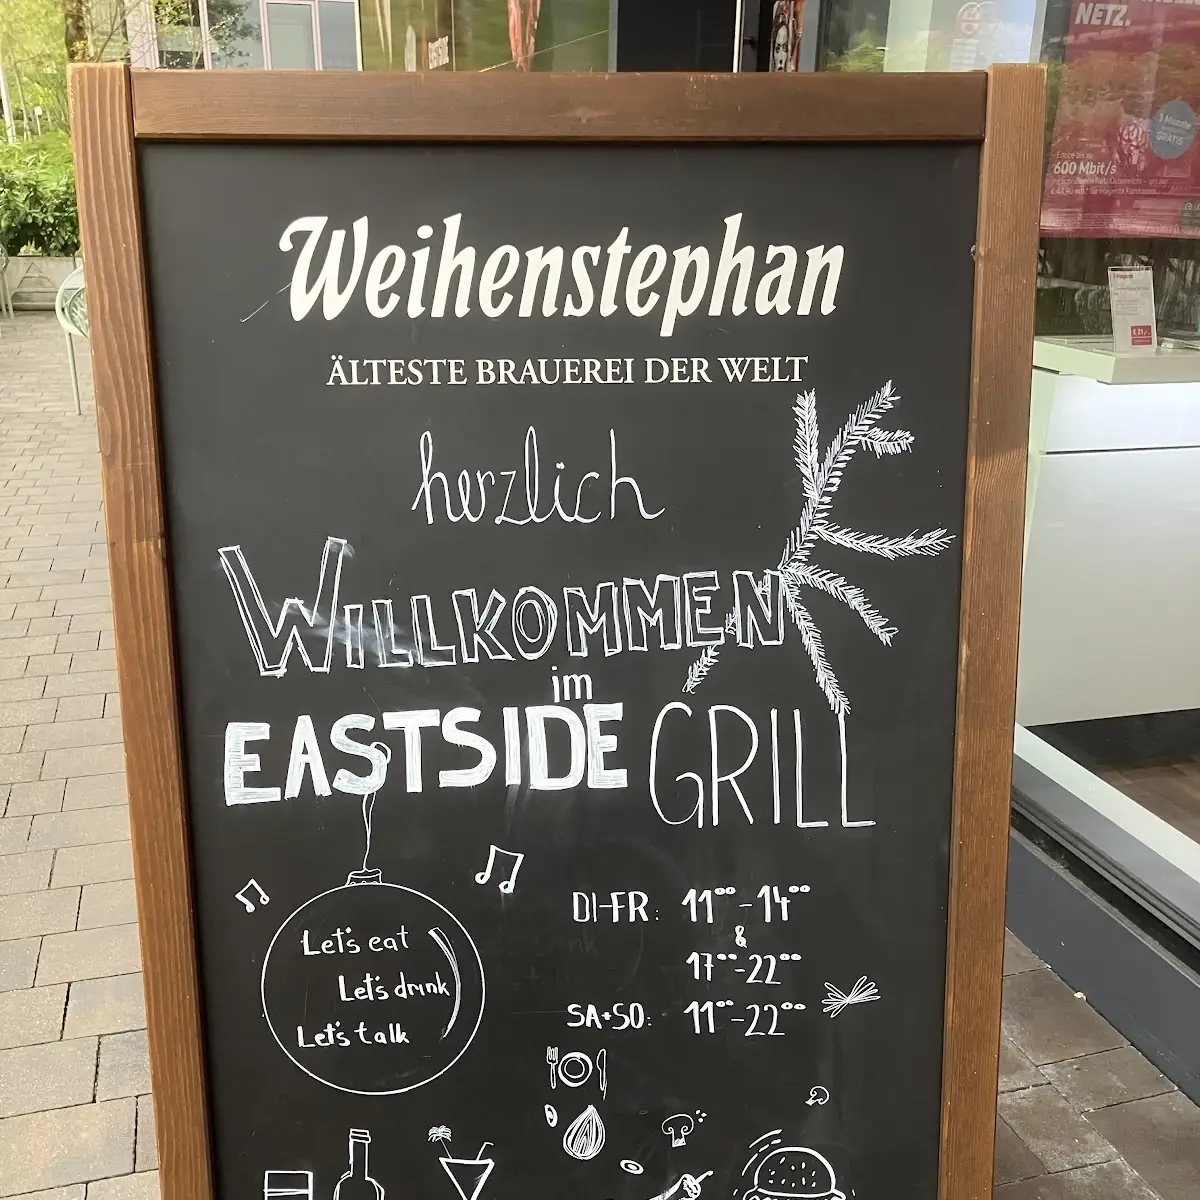 NETZ.
3 Monate
GRATIS
600 Mbit/s
Weihenstephan
ÄLTESTE BRAUEREI DER WELT
herzlich
WILLKOMMEN
im
EASTSIDE GRILL
Let's eat
Let's drink
Let's talk
DI-FR: 11⁰⁰-14⁰⁰
&
17⁰⁰-22⁰⁰
SA+SO: 11⁰⁰-22⁰⁰